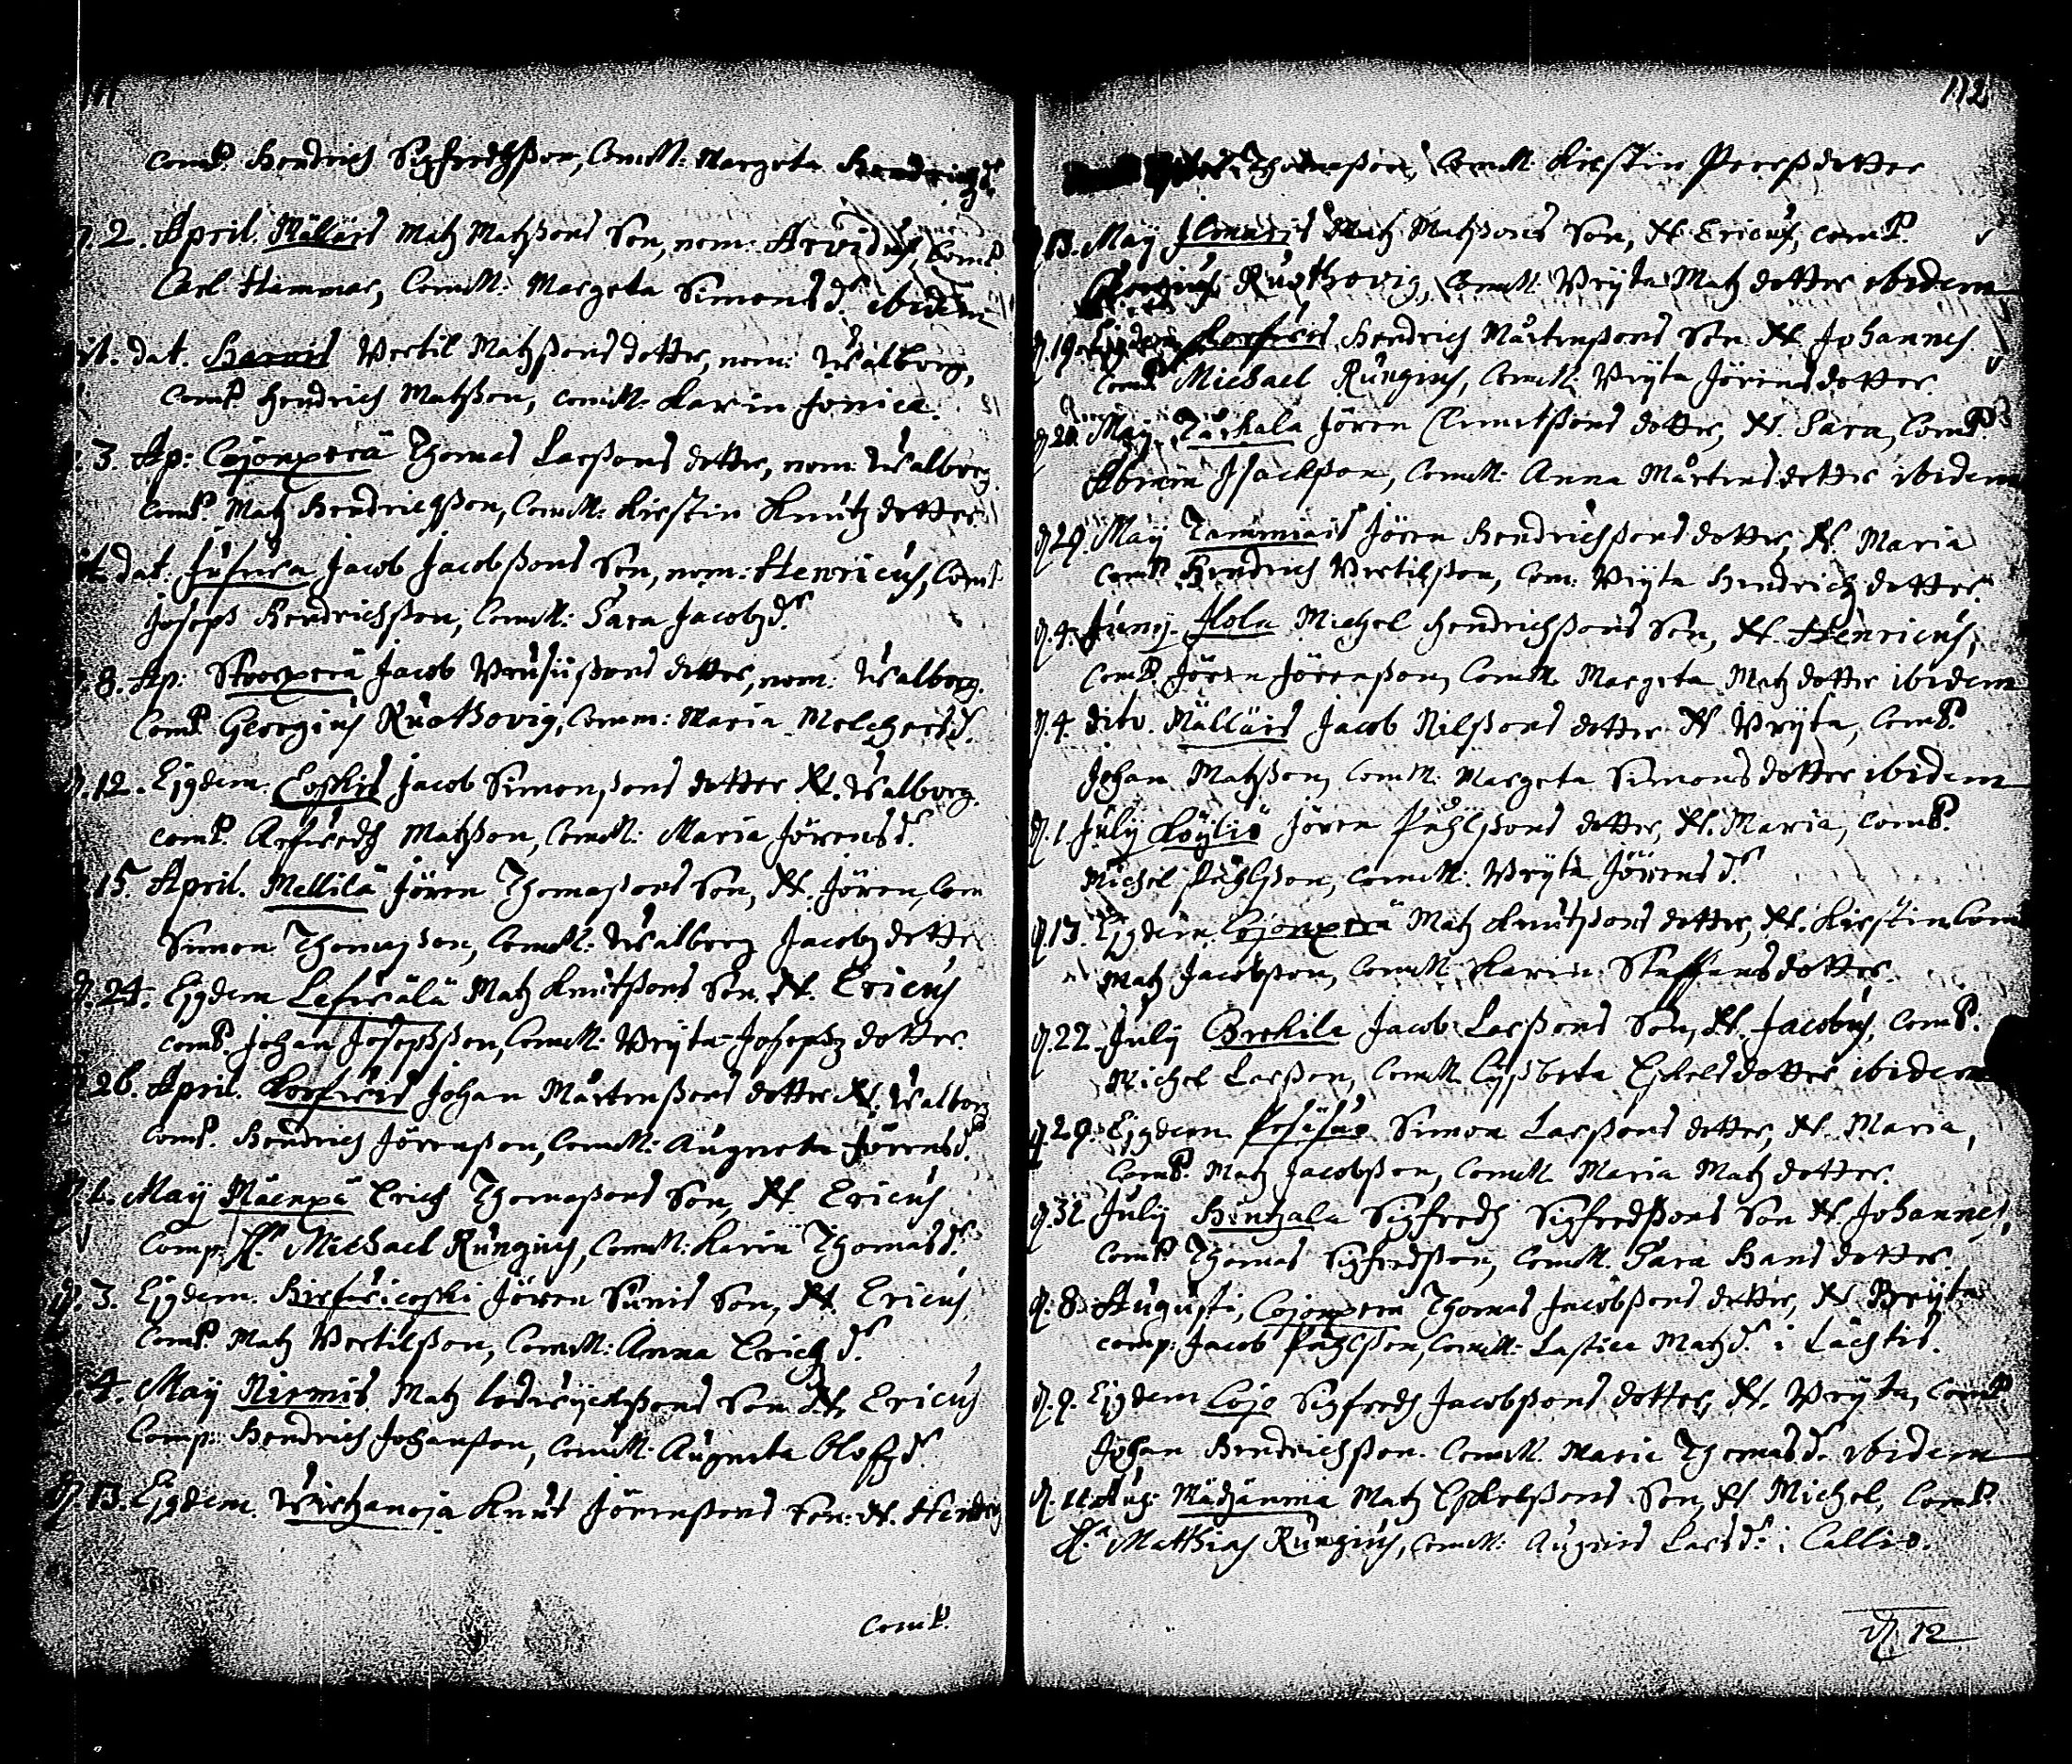 111
comP. Hendrich Sigfredßon, ComM: Margeta
2. April. Mälärs Matz Matzßons Son, nom: Arvidus, ComP.
Carl Hammar, ComM: Margeta Simonsdr. ibidem
it. dat. Bertil Matzßons dotter, nom: Walborg,
ComP Hendrich Matzßon, comM: Karin
3. Ap: Cojonperä Thomas Larßons dotter, nom: Walborg
ComP. Matz Hendrichßon, ComM: Kirstin Knutz dotter
it. dat: Jacob Jacobßons Son, nom: Henricus, Com
Joseph Hendrichßon, ComM: Sara Jacobzdr.
8. Ap: Jacob dotter, nom: Walborg.
ComP. Georgius Ruothovig, Comm: Maria Melchersdr.
d. 12. Ejgdem. Jacob Simonßons dotter N. Walborg.
comP. Matzßon, ComM: Maria Jörensdr.
15. April. Mellilä Jören Thomaßons Son, N. Jören, Com
Simon Thomaßon, ComM: Walborg Jacobz dotter
d. 24. Ejgdem Matz Knutßons Son. N. Ericus
comP. Johan Josephßon, ComM: Bryta Josephz dotter.
26. April. Johan Mårtenßons dotter N. Walborg
ComP. Hendrich Jörenßon, ComM: Augneta Jörensdr.
May Mäenpä Erich Thomaßons Son, N. Ericus
Comp: Hr. Michael Rungius, ComM: Karin Thomasdr.
d. 3. Ejgdem. Jören Sunis Son, N. Ericus,
ComP. Matz Bertilßon, ComM: Anna Erichzdr.
4. May Niemis Matz Son N. Ericus
Comp: Hendrich Johanßon, ComM: Augneta Olofzdr.
d 13. Ejgdem. Wirtzanoja Knut Jörenßons Son: N. Hendrich
ComP.
112
Thomaßon, ComM. Kirstin Perßdotter
d. 13. May Matz Matzßons Son, N. Ericus, comP.
Georgius Ruothovig, ComM: Bryta Matz dotter ibidem
d. 19 Ejgdem Hendrich Mårtenßons Son N. Johannes
ComP. Michael Rungius, ComM: Bryta Jörensdotter
May Jören Clemetßons dotter, N. Sara, ComP.
Abram Jsachßon, ComM: Anna Mårtensdotter ibidem
d 29. May Tammiais Jören Hendrichßons dotter, N. Maria
ComP. Hendrich Bertilßon, Com: Bryta Hendrichz dotter
d. 4. Juny. Jlola Michel Hendrichßons Son, N. Henricus,
ComP. Jören Jörenßon, ComM Margeta Matz dotter ibidem
d. 4. dito. Mälläis Jacob Nilßons dotter N. Bryta, ComP.
Johan Matzßon, ComM: Margeta Simonsdotter ibidem
d. 1. July Köyliö Jören Påhlßons dotter, N. Maria, comP.
Michel Påhlßon, ComM: Bryta Jörensdr.
d. 13. Ejgdem. Cojonperä Matz Knutßons dotter, N. Kirstin Com
Matz Jacobßon, ComM: Karin Staffansdotter.
d. 22. July Jacob Larßons Son, N. Jacobus, ComP.
Michel Larßon, ComM: Lyßbeta Eskelsdotter ibidem
d. 29. Ejgdem. Simon Larßons dotter, N. Maria,
ComP. Matz Jacobßon, ComM. Maria Matz dotter.
d. 31 July Hintzala Sigfredz Sigfredßons Son N Johannes,
ComP. Thomas Sigfredßon, ComM. Sara Hans dotter.
d. 8. Augusti, Cojonperä Thomas Jacobßons dotter, N Bryta
comp: Jacob Påhlßon, ComM: Matzdr. i Lächtis.
d. 9. Ejgdem Cojo Sigfredz Jacobßons dotter, N. Bryta, ComP.
Johan Hendrichßon. ComM. Maria Thomasdr. ibidem
d. 11. Aug: Matz Eskelßons Son, N. Michel, ComP.
Hr. Matthias Rungius, ComM: Larsdr. i Callio.
d. 12